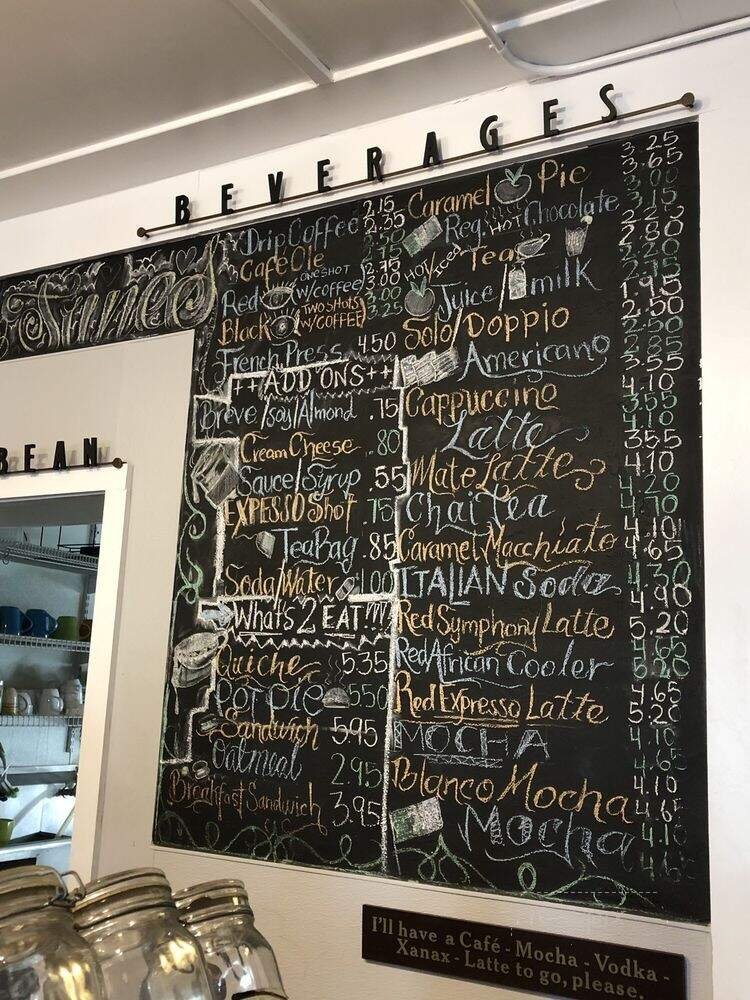 BEVERAGES
Drip Coffee 2.15
2.35
Café Ole
Red ONE SHOT w/coffee 2.75
3.00
Black TWO SHOTS w/COFFEE 3.00
3.25
French Press 4.50
++ADD ONS++
Breve/soy/Almond .75
Cream Cheese .80
Sauce/Syrup .55
EXPESSO Shot .75
Tea Bag .85
Soda/Water 1.00
What's 2 EAT!!!
Quiche 5.35
POT PIE 5.50
Sandwich 5.95
Oatmeal 2.95
Breakfast Sandwich 3.95
Caramel Pie 3.25
3.65
Reg. HOT Chocolate 3.00
3.15
HOT/Iced Tea
Juice/milk
Solo/Doppio 1.95
2.50
Americano
Cappuccino
Latte
Mate Latte
Chai Tea
Caramel Macchiato
ITALIAN Soda
Red Symphony Latte
Red African Cooler
Red Expresso Latte
MOCHA
Blanco Mocha
Mocha
3.55
4.10
3.55
4.10
3.55
4.10
4.20
4.70
4.10
4.65
4.30
4.90
5.20
4.65
5.20
4.65
5.20
4.10
4.65
4.10
4.65
4.10
4.65
BEAN
I'll have a Café - Mocha - Vodka -
Xanax - Latte to go, please.